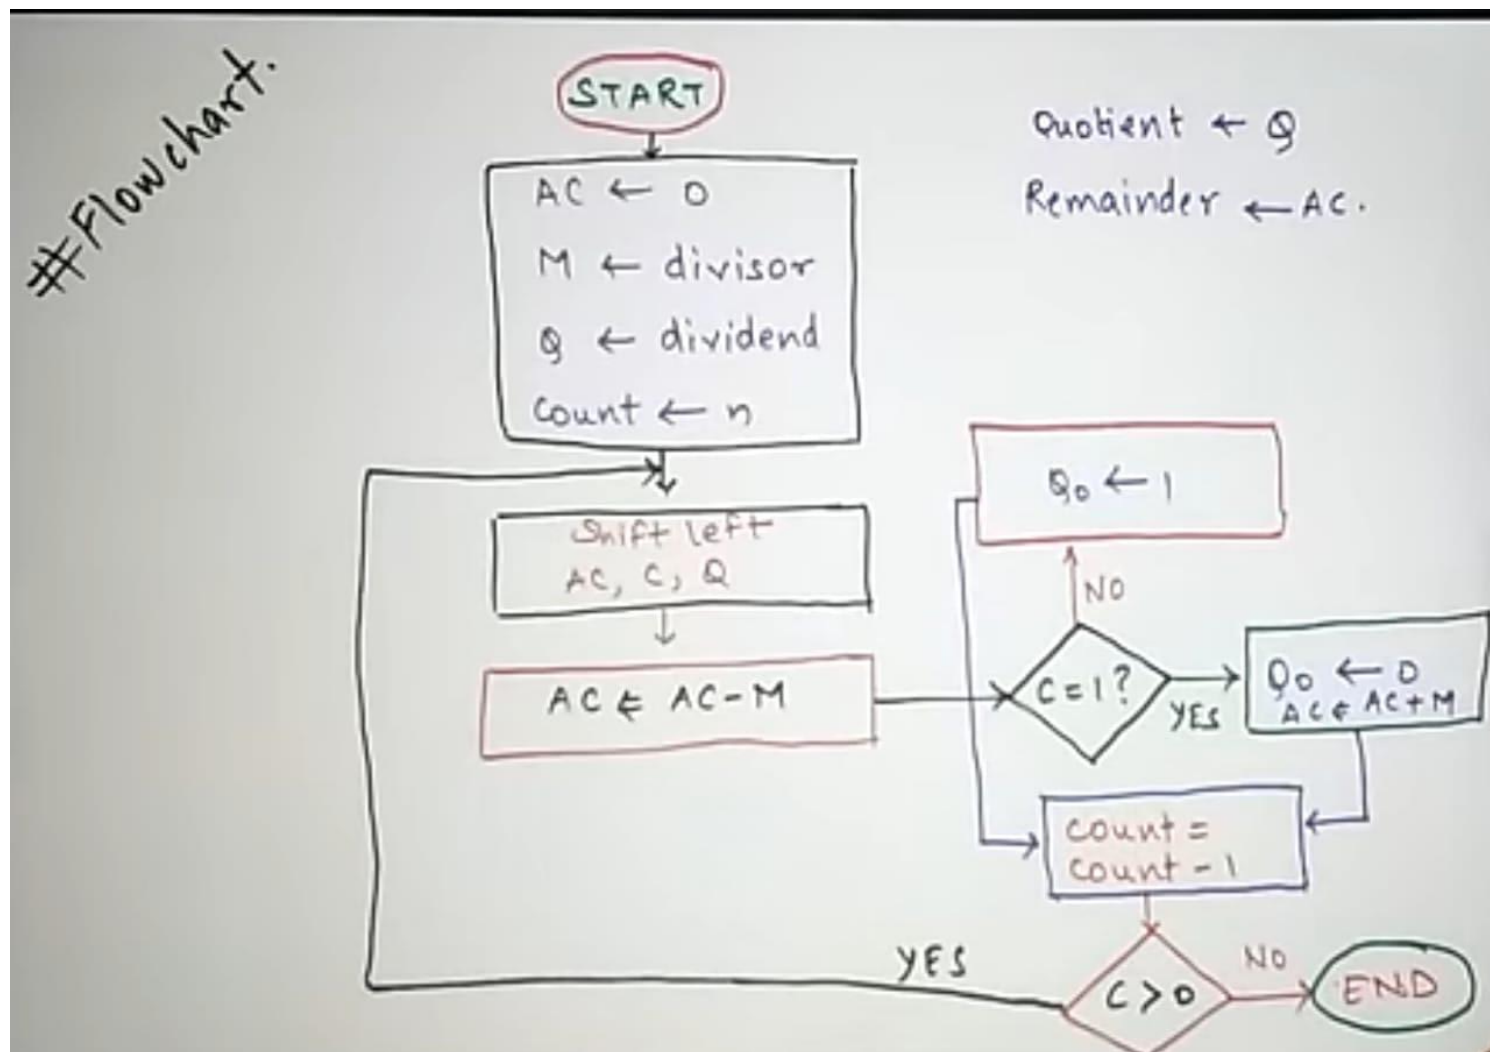 #Flowchart.
START
AC ← 0
M ← divisor
Q ← dividend
Count ← n
Quotient ← Q
Remainder ← AC.
Shift left
AC, C, Q
AC ← AC - M
C = 1 ?
NO
Q0 ← 1
YES
Q0 ← 0
AC ← AC + M
count =
count - 1
C > 0
YES
NO
END